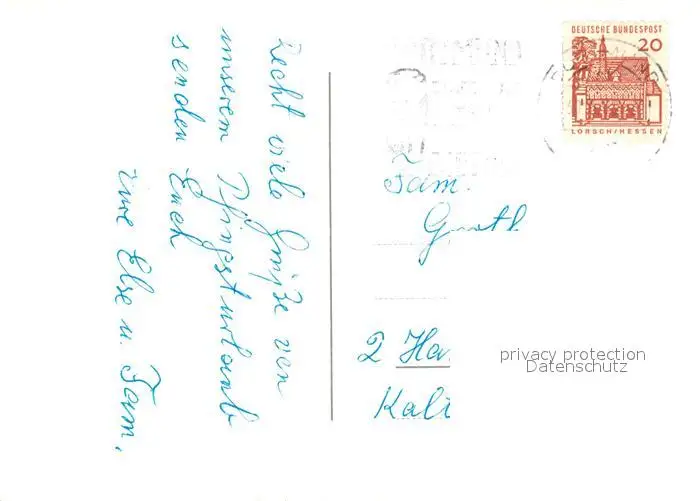 Recht viele Grüße von
unserem Pfingsturlaub
senden Euch
Eure Else u. Fam.
DEUTSCHE BUNDESPOST
20
LORSCH/HESSEN
Fam.
2 Ha
Kali
privacy protection
Datenschutz